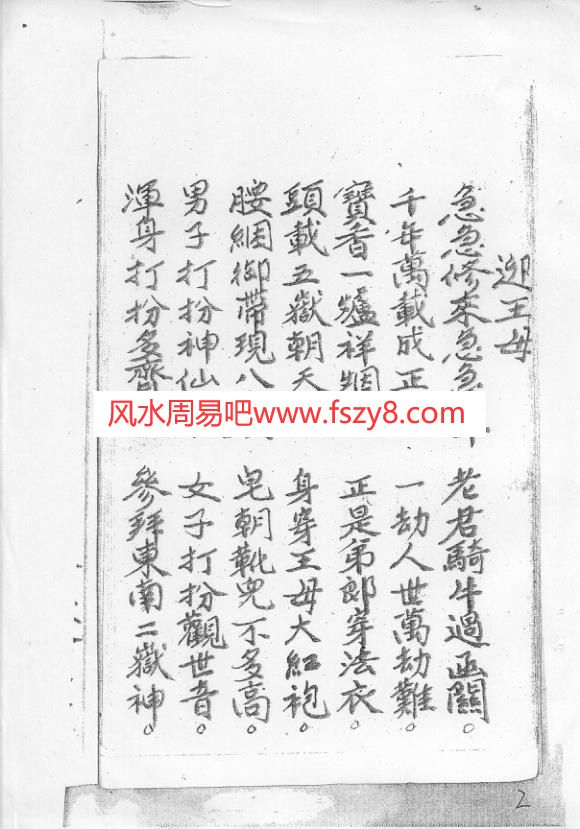 迎王母
急急修來急急 老君騎牛過函關。
千年萬載成正 一劫人世萬劫難。
寶香一爐祥烟 正是弟郎穿法衣。
頭載五嶽朝天 身穿王母大紅袍。
腰綑御帶現八 皂朝靴兒不多高。
男子打扮神仙 女子打扮觀世音。
渾身打扮多齊 參拜東南二嶽神。
风水周易吧www.fszy8.com
2